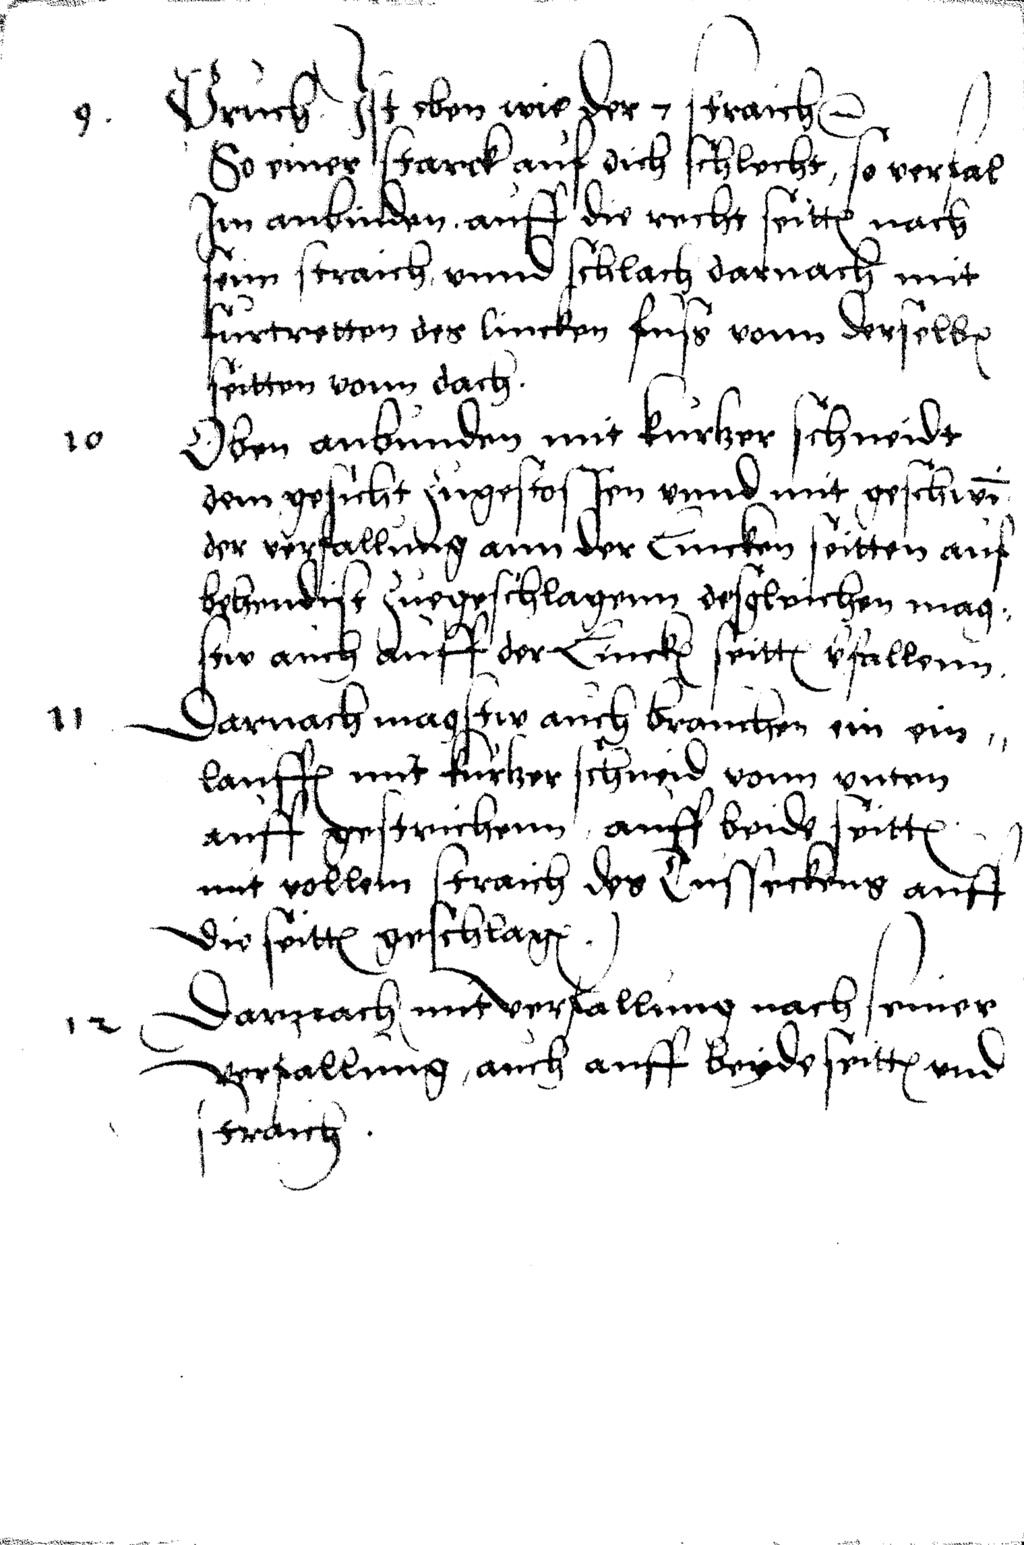 9. Bruch Ist eben wie der 7 straich
So einer starck auf dich schlecht, so verfal
Im anbinden auff die recht seitt nach
seim straich, vnnd schlach darnach mit
furtretten des lincken fuss vonn derselb
seitten vonn dach.
10 Oben anbunden mit kurtzer schneidt
dem gesicht zugestossen vnnd mit geschwi
der verfallung ann der Lincken seitten auf
behendist zuegeschlagenn desgleichen mag
stw auch auff der Linck seitt vfallenn.
11 Darnach magstw auch brauchen ein ein
lauff mit kurtzer schneid vonn vnten
auff gestrichenn, auff beide seitt
mit vollem straich des Tusseckens auff
die seitt geschlag.
12 Darnach mit verfallung nach seiner
verfallung, auch auff beyde seitt vnd
straich.